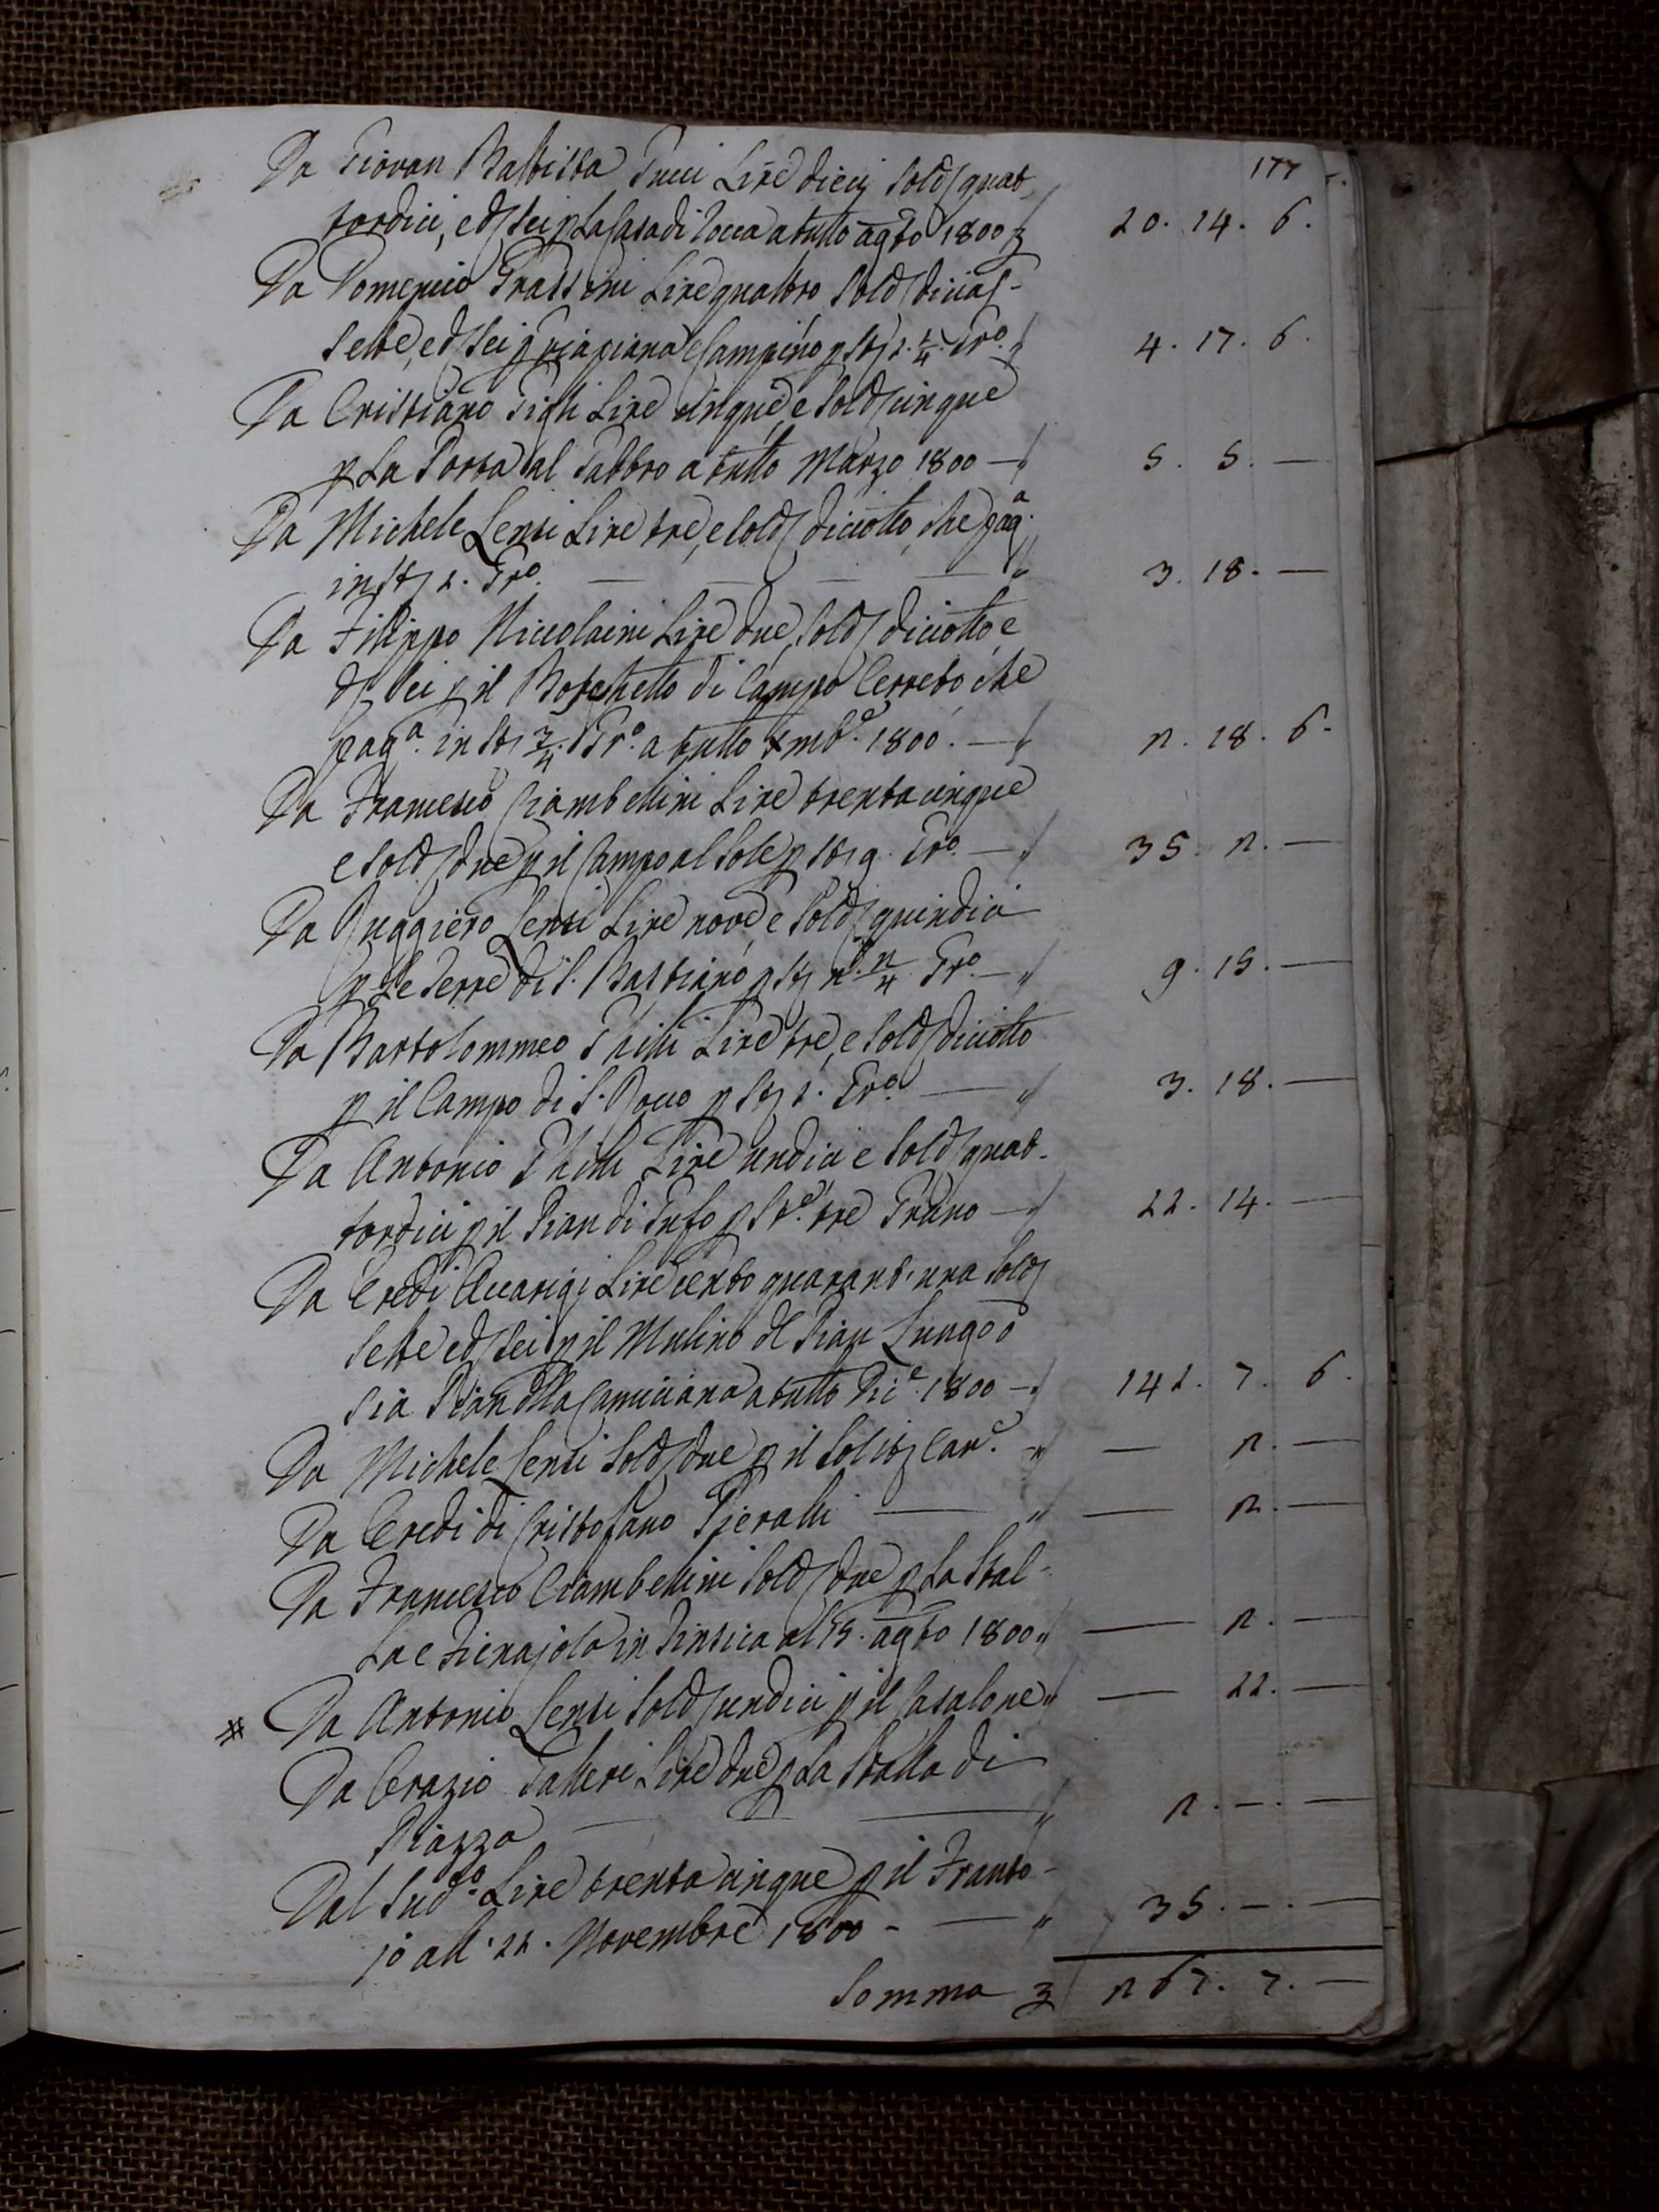 177
Da Giovan Battista Pucci Lire dieci sold quat-
tordici, e d sei p la Casa di Rocca a tutto agto 1800 20. 14. 6.
Da Domenico Grassini Lire quattro sold dicias-
sette, e d sei p Ripiana e Campino p st 1. 1/4. Gro. 4. 17. 6.
Da Cristiano Tigli Lire cinque, e sold cinque
p La Porta al Fabbro a tutto Marzo 1800 — 5. 5. —
Da Michele Lensi Lire tre, e sold diciotto, che paga.
in st 1. Gro. — — — — 3. 18. —
Da Filippo Niccolaini Lire due, sold diciotto, e
d. sei p il Boschetto di Campo Cerreto, che
paga. in st 3/4. Gro. a tutto xmbe. 1800. — 2. 18. 6.
Da Francesco Ciambellini Lire trentacinque
e sold due p il Campo al Sole p st 9. Gro. — 35. 2. —
Da Ruggiero Lensi Lire nove, e sold quindici
p Le Serre di S. Bastiano p st 2. 2/4 Gro. — 9. 15. —
Da Bartolommeo Lire tre, e sold diciotto
p il Campo di S. Rocco p st 1. Gro. — 3. 18. —
Da Antonio Lire undici e sold quat-
tordici p il Pian di Tufo p ste. tre Grano — 11. 14. —
Da Eredi Accarigi Lire cento quarant'una sold
sette e d sei p il Mulino del Pian Lungo o
sia Pian della Camiciana a tutto Dice. 1800 — 141. 7. 6.
Da Michele Lensi sold due p il solit Cane. — 2. —
Da Eredi di Cristofano Pieralli — — 2. —
Da Francesco Ciambellini sold due p La Stal-
la e Fienajola in al 15. agto 1800 — 2. —
# Da Antonio Lensi sold undici p il Casalone — 11. —
Da Orazio Salleri Lire due p La Stalla di
Piazza — — 2. —. —
Dal Sudo. Lire trenta cinque p il Franto-
jo all' 11. Novembre 1800 - — 35. —. —
Somma 267. 7. —